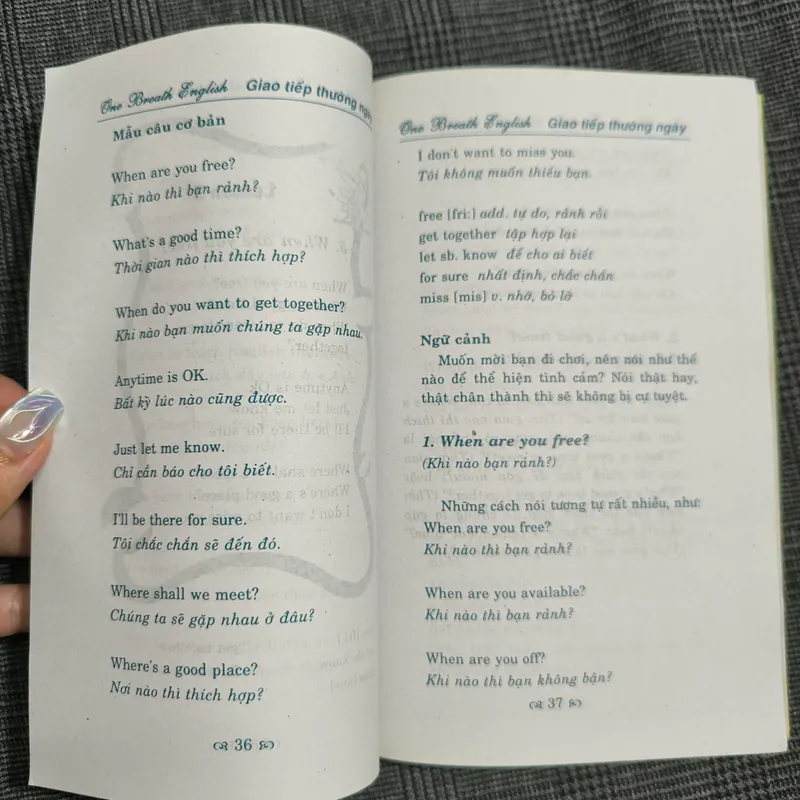 One Breath English Giao tiếp thường ngày
Mẫu câu cơ bản
When are you free?
Khi nào thì bạn rảnh?
What's a good time?
Thời gian nào thì thích hợp?
When do you want to get together?
Khi nào bạn muốn chúng ta gặp nhau.
Anytime is OK.
Bất kỳ lúc nào cũng được.
Just let me know.
Chỉ cần báo cho tôi biết.
I'll be there for sure.
Tôi chắc chắn sẽ đến đó.
Where shall we meet?
Chúng ta sẽ gặp nhau ở đâu?
Where's a good place?
Nơi nào thì thích hợp?
36
One Breath English Giao tiếp thường ngày
I don't want to miss you.
Tôi không muốn thiếu bạn.
free [fri:] add. tự do, rảnh rỗi
get together tập hợp lại
let sb. know để cho ai biết
for sure nhất định, chắc chắn
miss [mis] v. nhớ, bỏ lỡ
Ngữ cảnh
Muốn mời bạn đi chơi, nên nói như thế
nào để thể hiện tình cảm? Nói thật hay,
thật chân thành thì sẽ không bị cự tuyệt.
1. When are you free?
(Khi nào bạn rảnh?)
Những cách nói tương tự rất nhiều, như:
When are you free?
Khi nào thì bạn rảnh?
When are you available?
Khi nào thì bạn rảnh?
When are you off?
Khi nào thì bạn không bận?
37